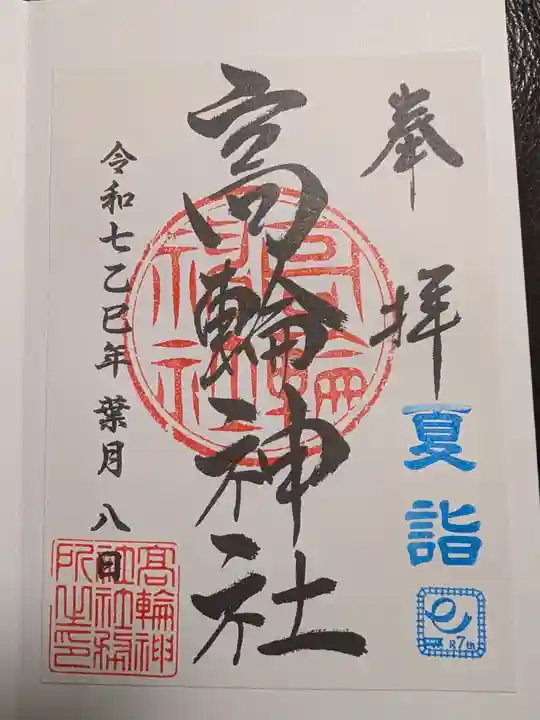 奉拝
夏詣
R7th
高輪神社
高輪神社
令和七乙巳年 葉月 八日
高輪神社社務所之印